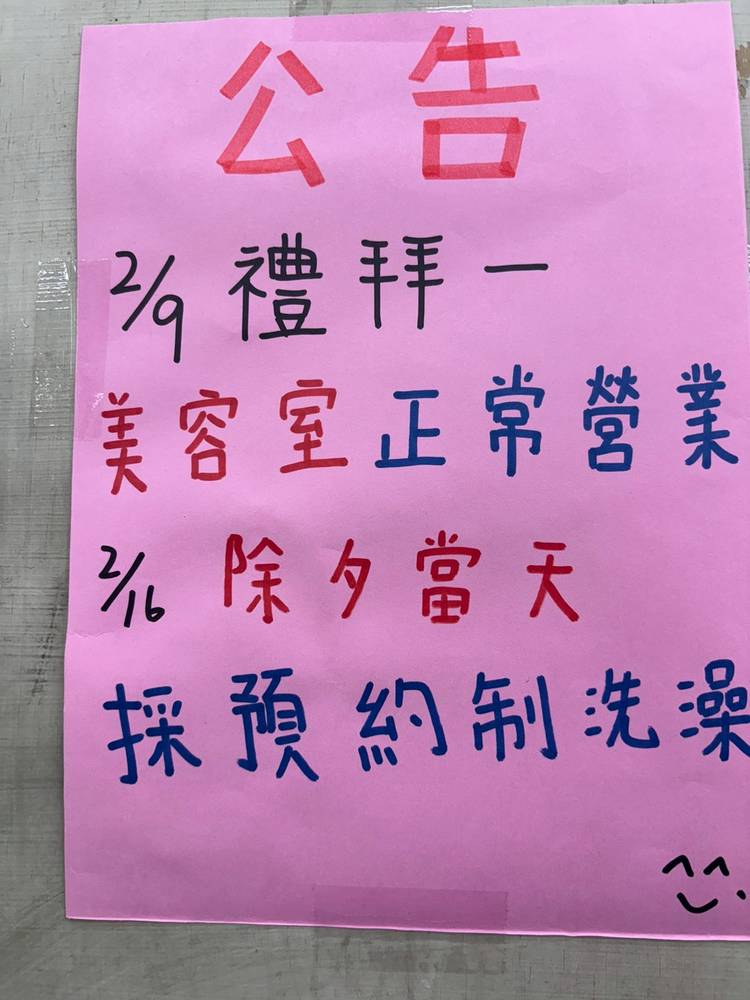 公告
2/9 禮拜一
美容室正常營業
2/16 除夕當天
採預約制洗澡